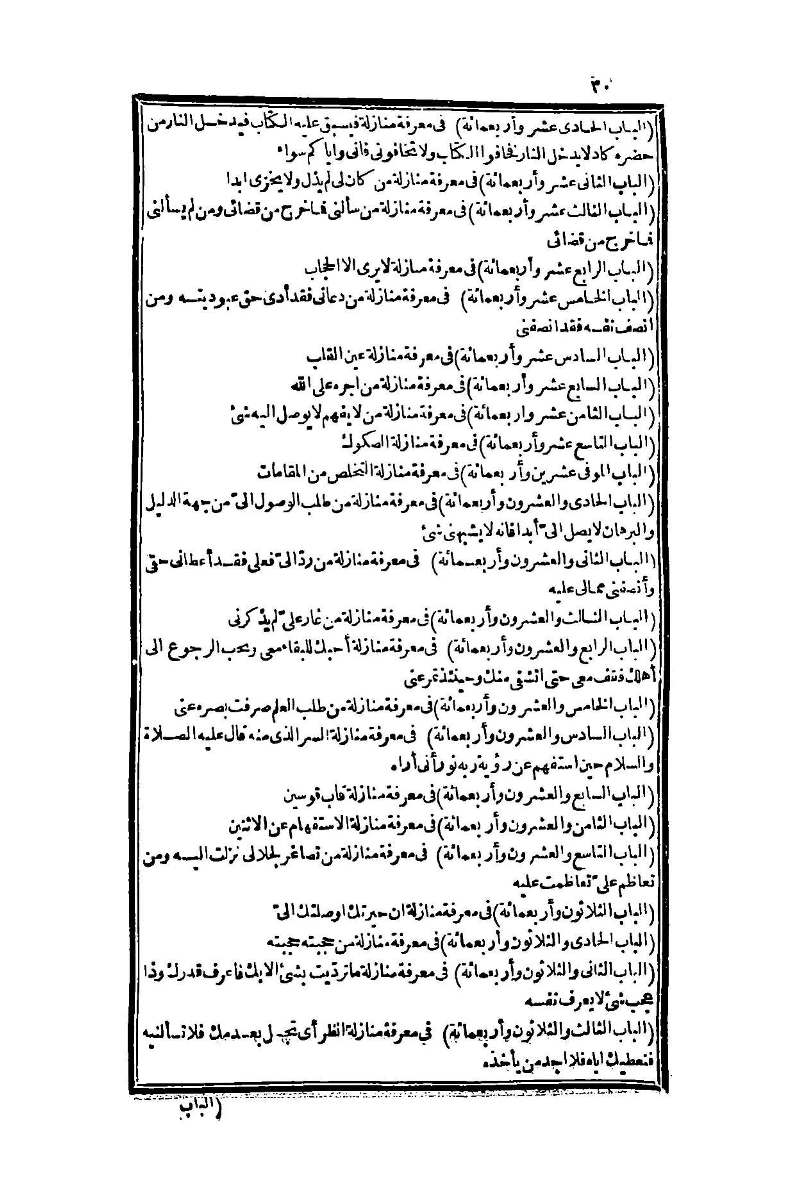 ٣٠
(الباب الحادى عشر وأربعمائة) فى معرفة منازلة فيسبق عليه الكتاب فيدخل النار من
حضره كاد لايدخل النار فخافوا الكتاب ولا تخافونى فانى واياكم سواء
(الباب الثانى عشر وأربعمائة) فى معرفة منازلة من كان لى لم يذل ولا يخزى ابدا
(الباب الثالث عشر وأربعمائة) فى معرفة منازلة من سألنى فما خرج من قضائى ومن لم يسألنى
فما خرج من قضائى
(الباب الرابع عشر وأربعمائة) فى معرفة منازلة لايرى الا الحجاب
(الباب الخامس عشر وأربعمائة) فى معرفة منازلة من دعانى فقد أدى حق عبوديته ومن
انصف نفسه فقد انصفنى
(الباب السادس عشر وأربعمائة) فى معرفة منازلة عين القلب
(الباب السابع عشر وأربعمائة) فى معرفة منازلة من اجره على الله
(الباب الثامن عشر واربعمائة) فى معرفة منازلة من لايفهم لايوصل اليه شئ
(الباب التاسع عشر وأربعمائة) فى معرفة منازلة الصكوك
(الباب الموفى عشرين وأربعمائة) فى معرفة منازلة التخلص من المقامات
(الباب الحادى والعشرون وأربعمائة) فى معرفة منازلة من طلب الوصول الىّ من جهة الدليل
والبرهان لايصل الىّ أبدا فانه لايشبهنى شئ
(الباب الثانى والعشرون وأربعمائة) فى معرفة منازلة من ردّ الىّ فعلى فقد أعطانى حقى
وأنصفنى ممالى عليه
(الباب الثالث والعشرون وأربعمائة) فى معرفة منازلة من غار علىّ لم يذكرنى
(الباب الرابع والعشرون وأربعمائة) فى معرفة منازلة أحبك للبقاء معى وتحب الرجوع الى
أهلك فقف معى حتى اتشفى منك وحينئذ تمر عنى
(الباب الخامس والعشرون وأربعمائة) فى معرفة منازلة من طلب العلم صرفت بصره عنى
(الباب السادس والعشرون وأربعمائة) فى معرفة منازلة السر الذى منه قال عليه الصلاة
والسلام حين استفهم عن رؤية ربه نور أنى أراه
(الباب السابع والعشرون وأربعمائة) فى معرفة منازلة قاب قوسين
(الباب الثامن والعشرون وأربعمائة) فى معرفة منازلة الاستفهام عن الاثنين
(الباب التاسع والعشرون وأربعمائة) فى معرفة منازلة من تصاغر لجلالى نزلت اليه ومن
تعاظم علىّ تعاظمت عليه
(الباب الثلاثون وأربعمائة) فى معرفة منازلة ان حيرتك اوصلتك الىّ
(الباب الحادى والثلاثون وأربعمائة) فى معرفة منازلة من حجبته حجبته
(الباب الثانى والثلاثون وأربعمائة) فى معرفة منازلة ماترديت بشئ الابك فاعرف قدرك وذا
عجب شئ لايعرف نفسه
(الباب الثالث والثلاثون وأربعمائة) فى معرفة منازلة انظر أى تجل بعدمك فلا تسألنيه
فنعطيك اياه فلا اجد من يأخذه
(الباب